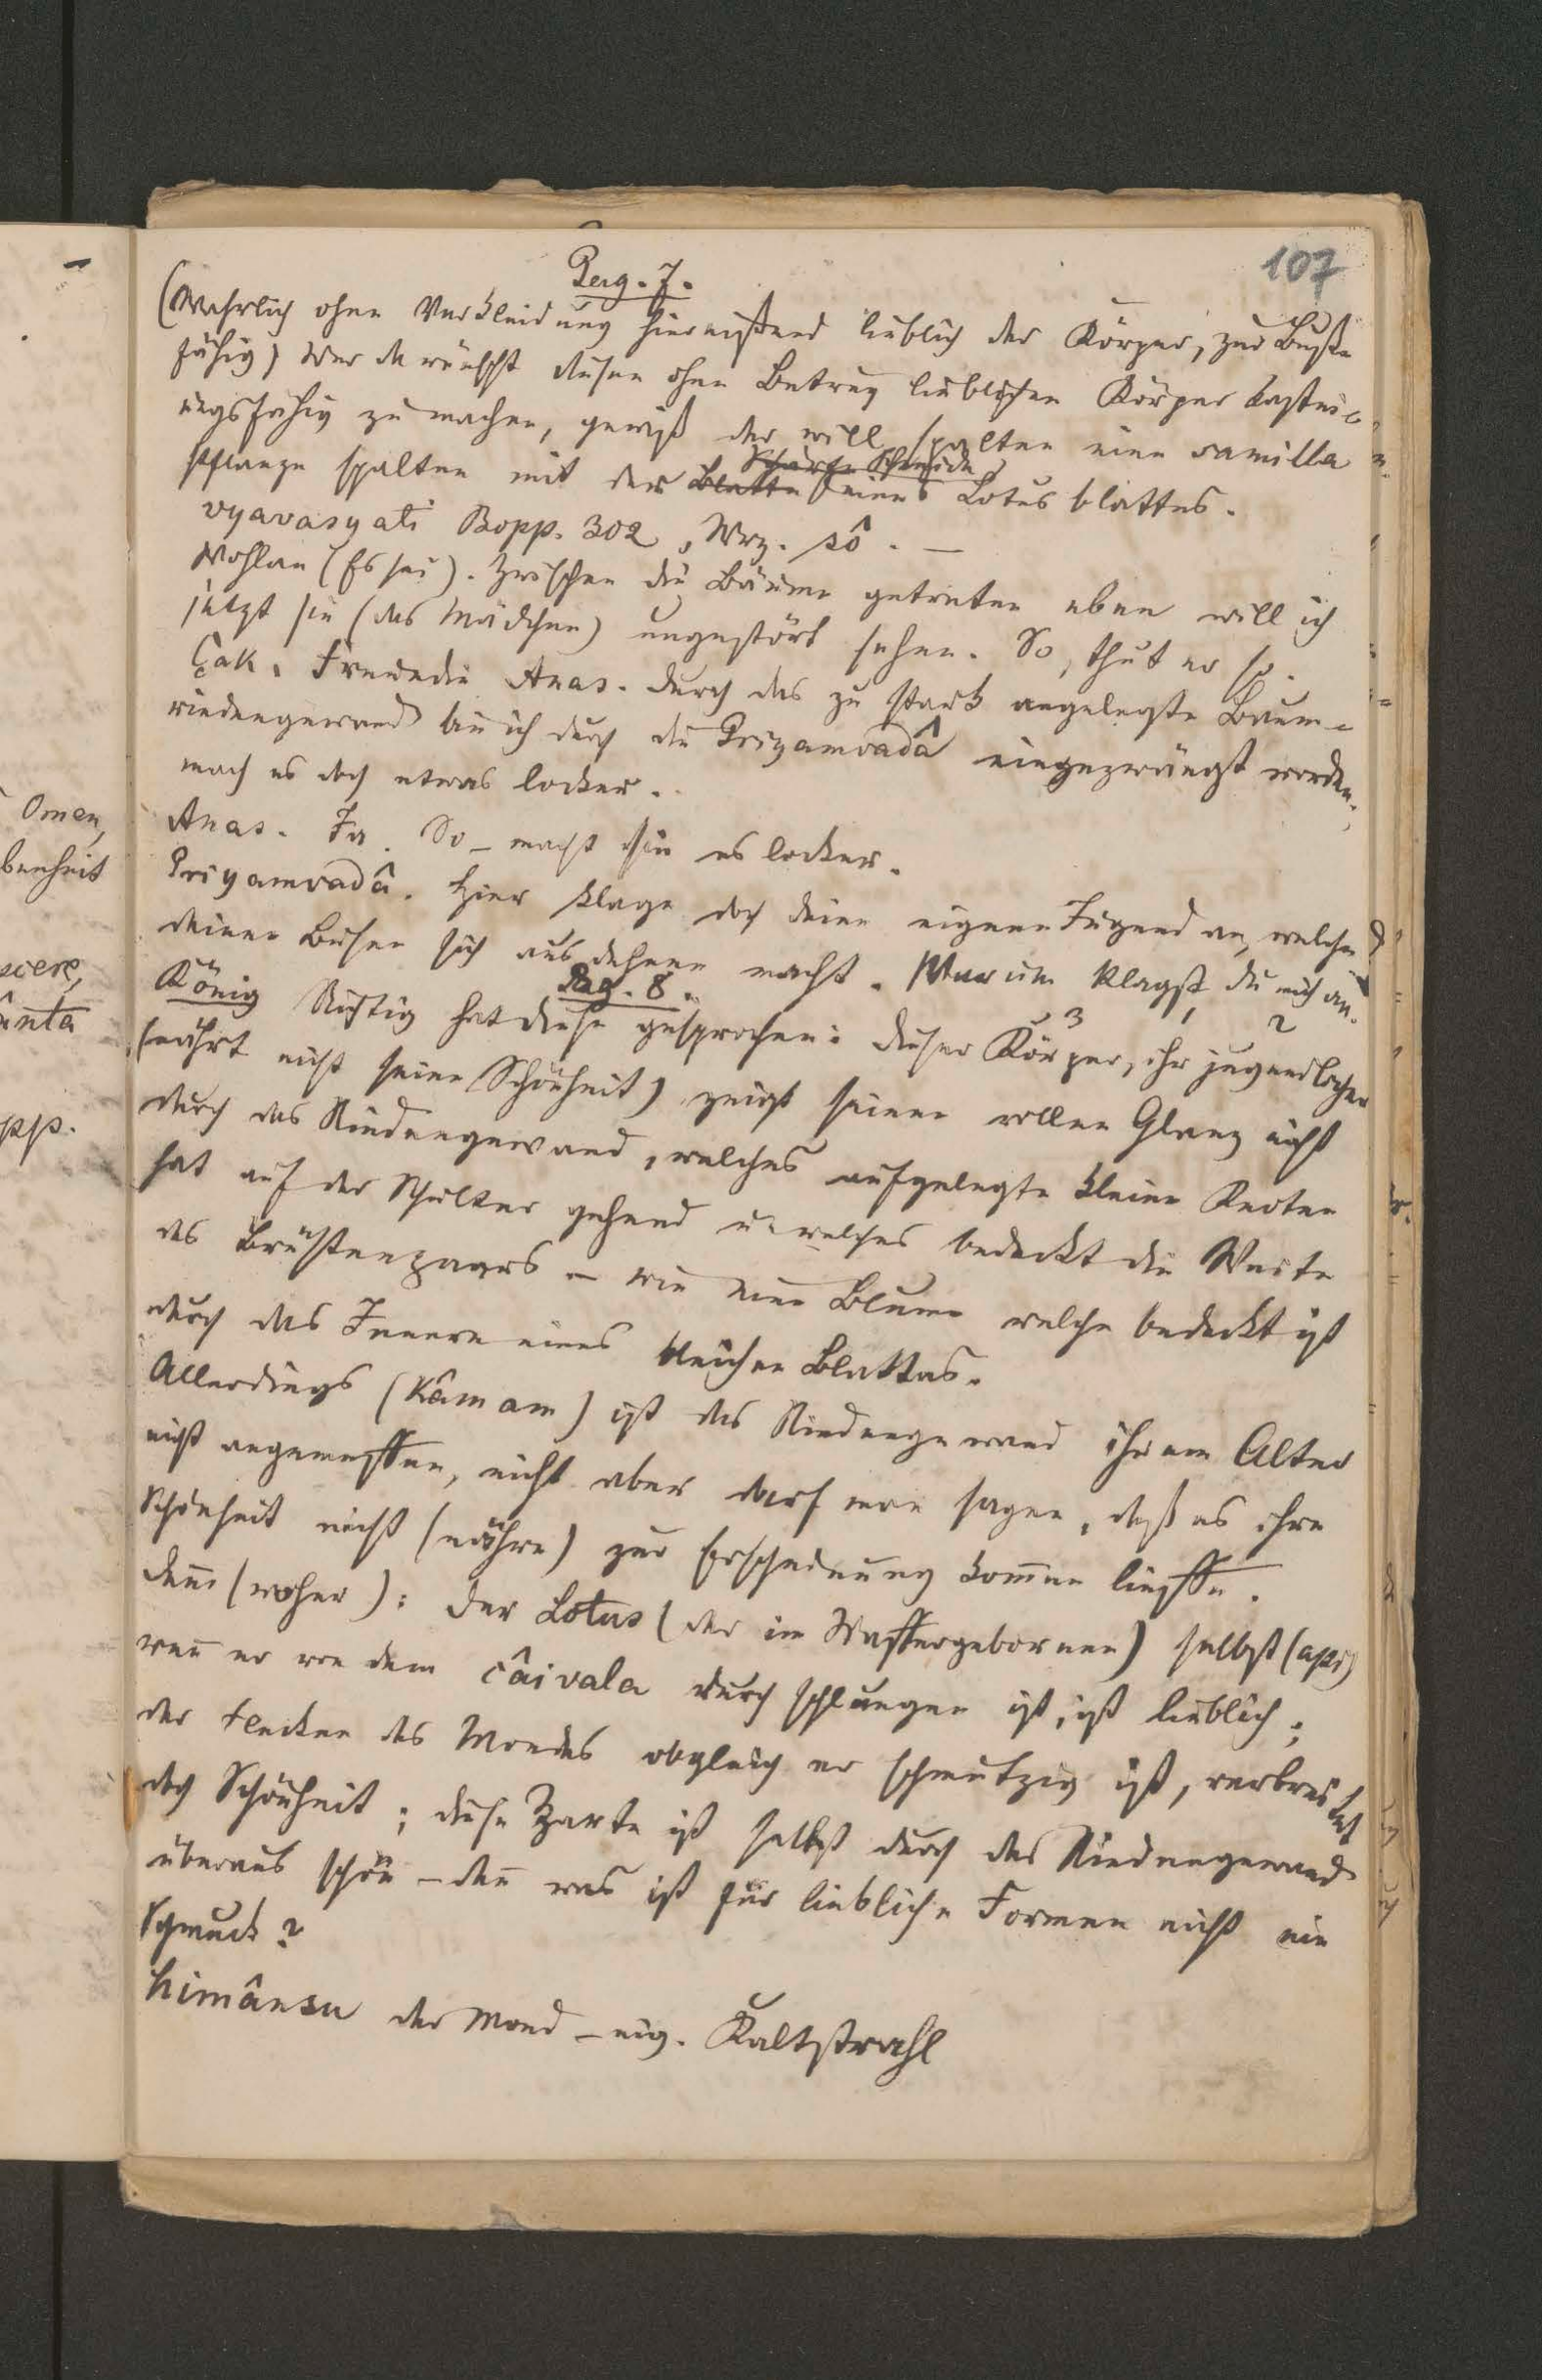 107
Pag. 7.
(Wahrlich ohne Verkleidung hinreißend lieblich der Körper, zur Buße
fähig) Wer da wünscht diesen ohne Betrug lieblichen Körper kastei-
ungsfähig zu machen, gewiß der will spalten eine samilla
Schärfe Schneide
pflanze spalten mit der Blatte eines Lotusblattes.
vyavasyati Bopp. 302, Wrz. sô. —
Wohlan (Es sei). Zwischen die Bäume getreten eben will ich
jetzt sie (das Mädchen) ungestört sehen. So, thut er so.
Çak. Freundin Anas. durch das zu stark angelegte Baum-
rindengewand bin ich durch die Priyamvadâ eingezwängt worden,
mach es doch etwas locker.
Anas. Ja. So – macht sie es locker.
Priyamvadâ. Hier klage doch deine eigene Jugend an, welche
deinen Busen sich ausdehnen macht. Warum klagst du mich an.
Pag. 8.
König Richtig hat diese gesprochen: dieser Körper, ihr jugendlicher
3 1 2
(nährt nicht seine Schönheit) zeigt seinen vollen Glanz nicht
durch das Rindengewand, welches aufgelegte kleine Knoten
hat auf der Schulter gehend u. welches bedeckt die Weite
des Brüstenpaars – wie eine Blume welche bedeckt ist
durch das Innere eines bleichen Blattes.
Allerdings (Kâmam) ist das Rindengewand ihrem Alter
nicht angemessen, nicht aber darf man sagen, daß es ihre
Schönheit nicht (nähre) zur Erscheinung kommen liesse.
Denn (woher): der Lotus (der im Wassergebornen) selbst (api)
wenn er von dem çâivala durchschlungen ist, ist lieblich;
der Flecken des Mondes obgleich er schmutzig ist, verbreitet
doch Schönheit; diese Zarte ist selbst durch das Rindengewand
überaus schön – denn was ist für liebliche Formen nicht ein
Schmuck?
himânsu der Mond – eig. Kaltstrahl
Omen,
benheit
scere,
ânta
pp.